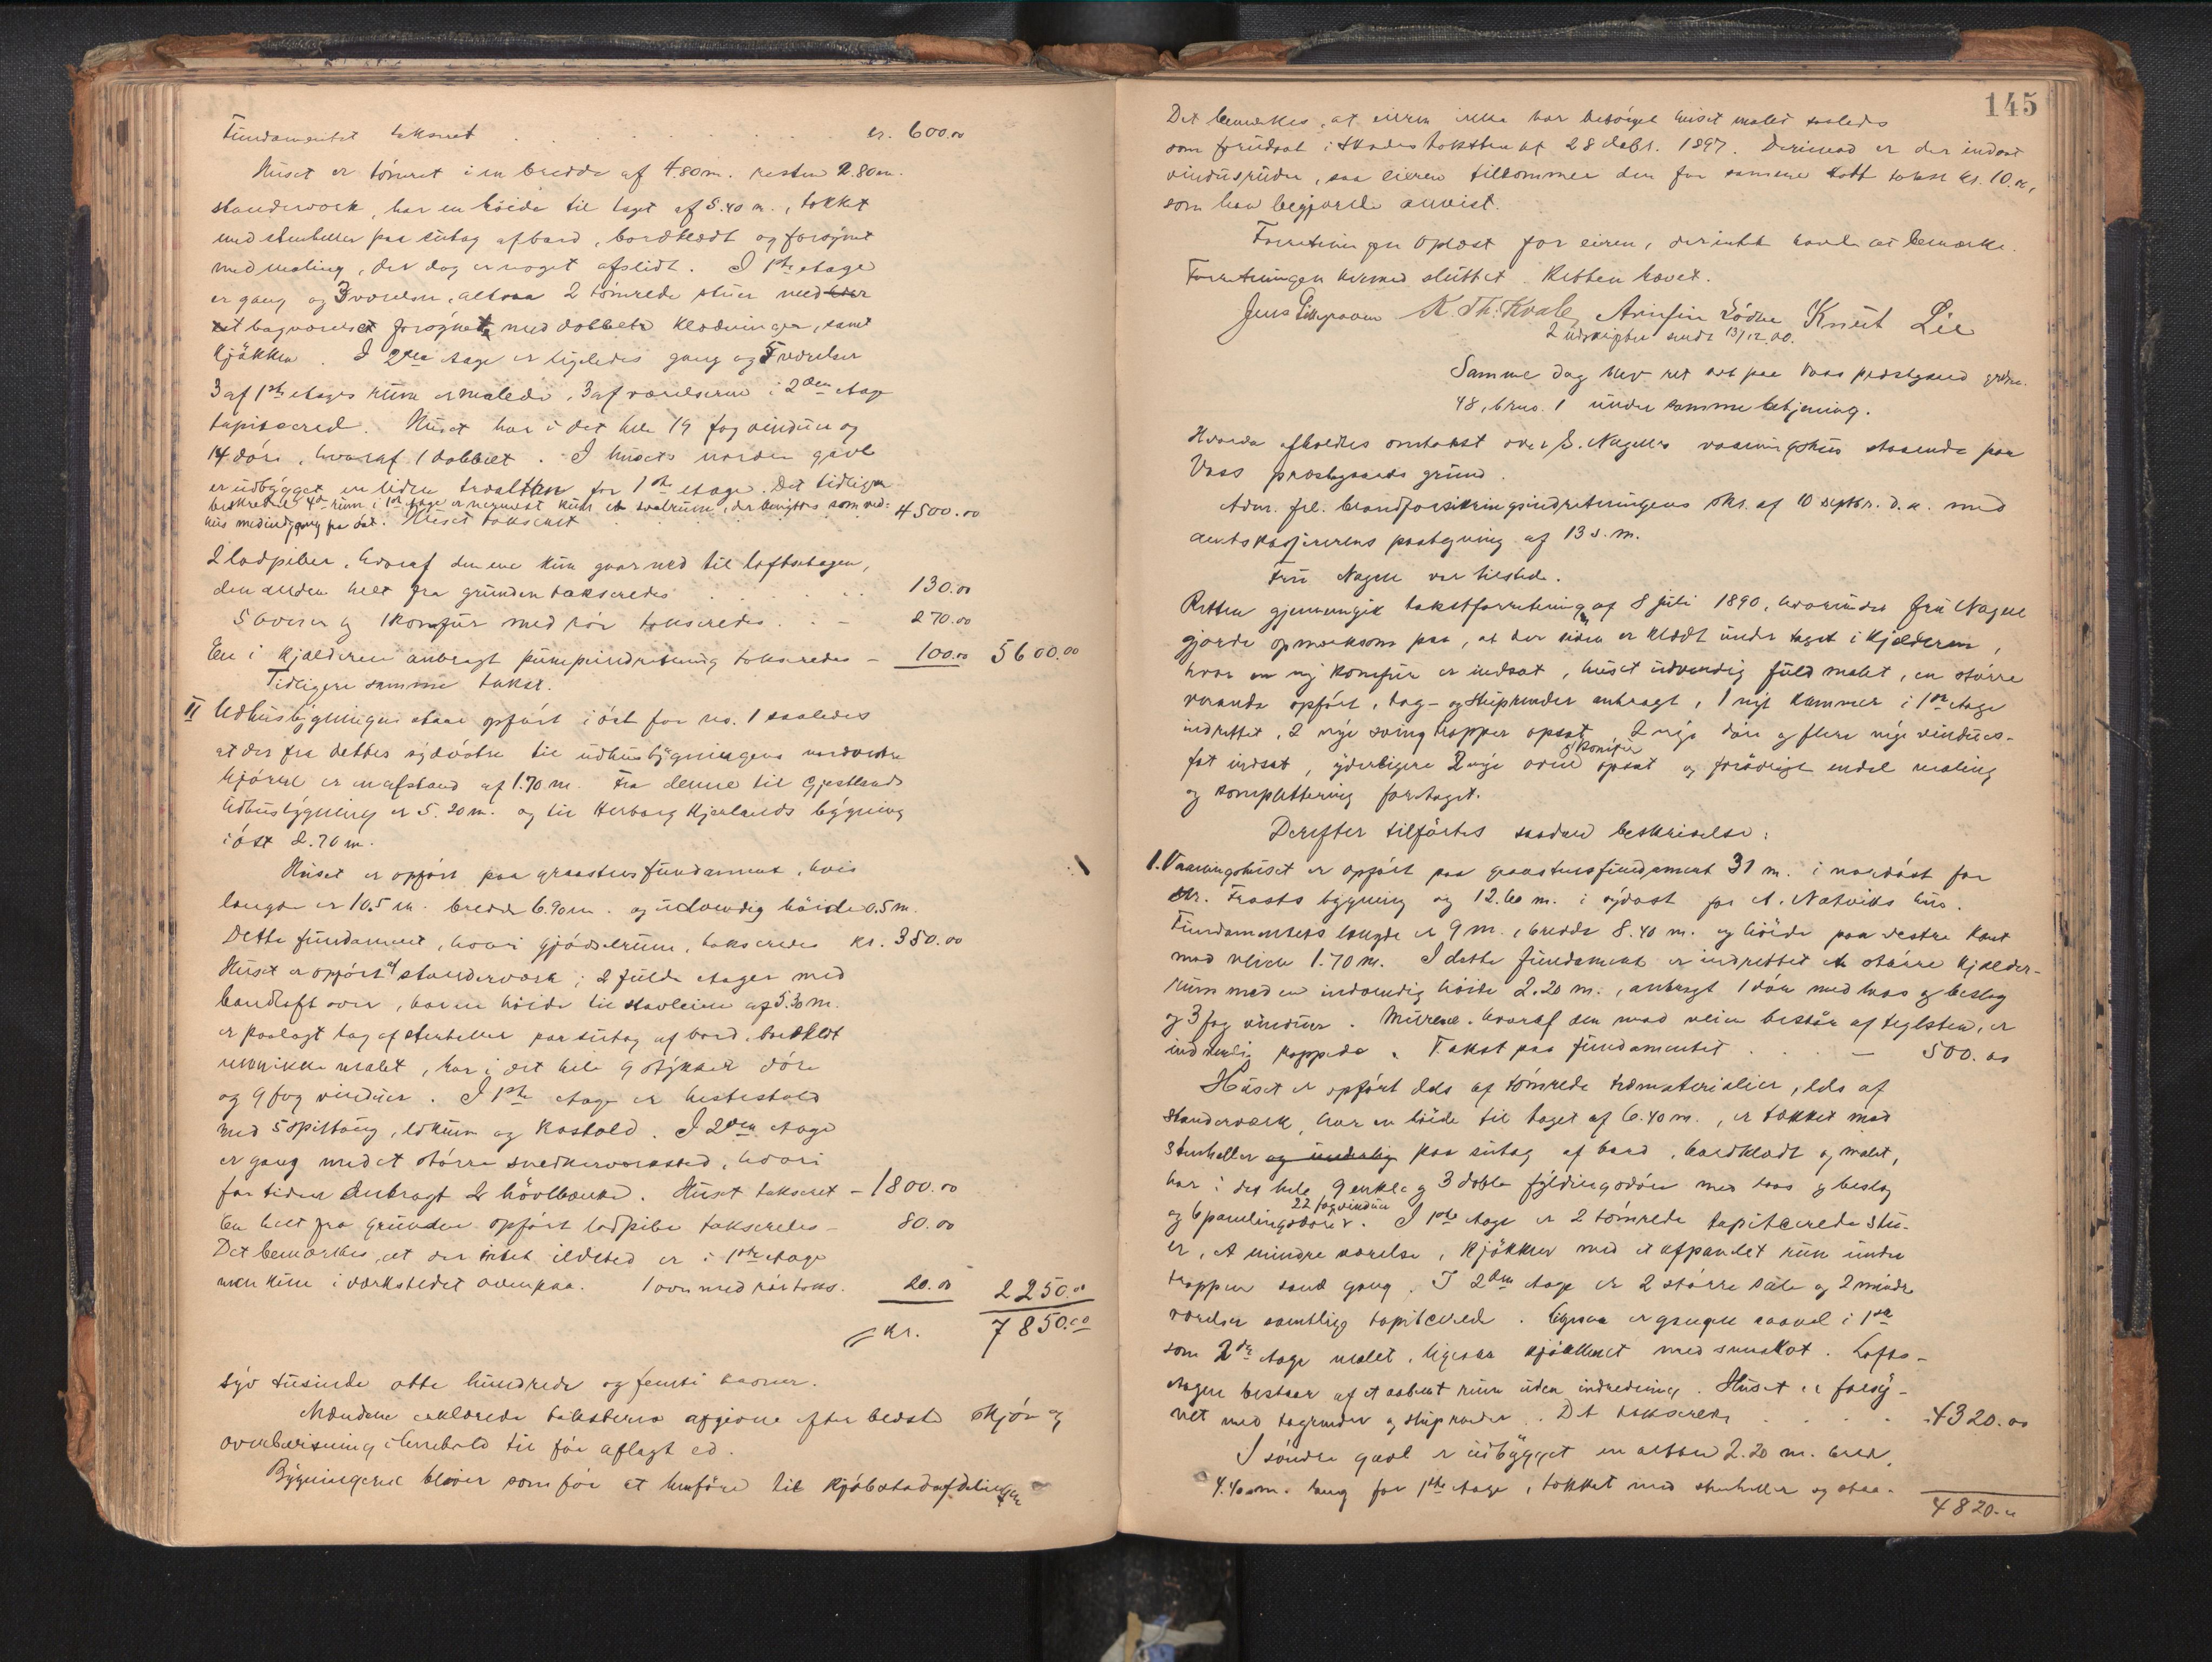 Fundamentet takseret . . . . . . . kr. 600.00
Huset er tømret i en bredde af 4.80 m. resten 2.80 m.
standerværk, har en høide til taget af 5.40 m., tækket
med stenheller paa sutag af bord, bordklædt og forsynet
med maling, der dog er noget afslidt. I 1ste etage
er gang og 3 værelser, altsaa 2 tømrede stuer med
et bagværelse forsynet med dobbelte klædninger, samt
kjøkken. I 2den etage er ligeledes gang og 5 værelser
3 af 1ste etages rum er malede, 3 af værelserne i 2den etage
tapisered. Huset har i det hele 19 fag vinduer og
14 døre, hvoraf 1 dobbelt. I husets nordre gavl
er udbygget en liden for 1ste etage. Det tidligere
beskrevne 4de rum i 1ste etage er nærmest kun et svalrum, der benyttes som ved-
hus med indgang fra øst. Huset takseret 4500.00
2 ladpiber, hvoraf den ene kun gaar ned til loftsetagen,
den anden helt fra grunden takseredes . . . . . 130.00
5 ovner og 1 komfur med rør takseredes . . - 270.00
En i kjælderen anbragt pumpeindretning takseredes - 100.00 5600.00
Tidligere samme takst.
II Udhusbygningen staar opført i øst for no. 1 saaledes
at der fra dettes sydøstre til udhusbygningens nordvestre
hjørne er en afstand af 1.70 m. Fra denne til Gjestlands
udhusbygning er 5.20 m. og til Herborg Hjerlands bygning
i øst 2.70 m.
Huset er opført paa graastensfundament, hvis
længde er 10.5 m. bredde 6.90 m. og udvendig høide 0.5 m.
Dette fundament, hvori gjødselrum, takseredes kr. 350.00
Huset er opført af standerværk i 2 fulde etager med
bandloft over, har en høide til stavleiene af 5.30 m.
er paalagt tag af stenheller paa sutag af bord, bordklædt
men ikke malet, har i det hele 9 stykker døre
og 9 fag vinduer. I 1ste etage er hestestald
med 5 spiltaug, lokum og kostald. I 2den etage
er gang med et større snedkerværksted, hvori
for tiden anbragt 2 høvlbænke. Huset takseret - 1800.00
En helt fra grunden opført ladpibe takseredes - 80.00
Det bemærkes, at der intet ildsted er i 1ste etage
men kun i værkstedet ovenpaa. 1 ovn med rør taks. 20.00 2250.00
kr. 7850.00
syv tusinde otte hundrede og femti kroner.
Mændene erklærede taksterne afgivne efter bedste skjøn og
overbevisning i henhold til før aflagt ed.
Bygningerne bliver som før at henføre til kjøbstadafdelingen
145
Det bemærkes, at eieren ikke har besørget huset malet saaledes
som forudsat i skadestaksten af 28 debr. 1897. Derimod er der indsat
vindusruder, saa eieren tilkommer den for samme satt takst kr. 10.00,
som han begjærede anvist.
Forretningen oplæst for eieren, der intet havde at bemærke.
Forretningen hermed sluttet. Retten hævet.
Jens Lillegraven K. Th. Kvale Arnfin Lødve Knut Lie
2 udskrifter sendt 13/12.00.
Samme dag blev ret sat paa Voss prestegaard grdno.
48, brno. 1 under samme betjening.
Hvorda afholdtes omtakst over E. Nagells vaaningshus staaende paa
Voss præstegaards grund.
Adm. frl. brandforsikringsindretningens skr. af 10 septbr. d.a. med
amtskasserens paategning af 13 s.m.
Fru Nagell var tilstede.
Retten gjennemgik takstforretning af 8 juli 1890, hvorunder fru Nagell
gjorde opmærksom paa, at der siden er klædt under taget i kjælderen,
hvor en ny komfur er indsat, huset udvendig fuld malet, en større
veranda opført, tag- og stuprender anbragt, 1 nyt kammer i 1ste etage
indrettet, 2 nye svingtrapper opsat, 2 nye døre og flere nye vindues-
fat indsat, yderligere 2 nye ovne og komfur opsat og forøvrigt endel maling
og komplettering foretaget.
Derefter tilførtes saadan beskrivelse:
1. Vaaningshuset er opført paa graastensfundament 31 m. i nordøst for
Str. Frosts bygning og 12.60 m. i sydøst for A. Natviks hus.
Fundamentets længde er 9 m., bredde 8.40 m. og høide paa vestre kant
mod veien 1.70 m. I dette fundament er indrettet et større kjælder-
rum med en indvendig høide 2.20 m., anbragt 1 dør med laas og beslag
og 3 fag vinduer. Murene, hvoraf den mod veien består af teglsten, er
indvendig pappede. Takst paa fundamentet . . . - 500.00
Huset er opført dels af tømrede træmaterialier, dels af
standerværk, har en høide til taget af 6.40 m., er tækket med
stenheller paa sutag af bord, bordklædt og malet,
har i det hele 9 enkle og 3 doble fyldingsdøre med laas og beslag
og 6 panelingsdører. 22 fag vinduer I 1ste etage er 2 tømrede tapiterede stu-
er, et mindre værelse, kjøkken med et afpanelet rum under
trappen samt gang. I 2den etage er 2 større sale og 2 mindre
værelser samtlige tapiterede. Ligesaa er gangen saavel i 1ste
som 2den etage malet, ligesaa kjøkkenet med . Lofts-
etagen bestaar af et aabent rum uden indredning. Huset er forsy-
net med tagrender og stuprender. Det takseredes . . . . 4320.00
I søndre gavl er udbygget en altan 2.20 m. bred,
4.40 m. lang for 1ste etage, tækket med stenheller og staa-
4820.00